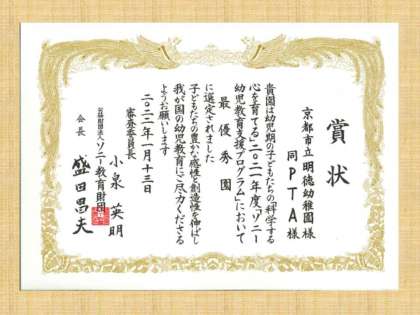 賞状
京都市立明徳幼稚園様
同PTA様
貴園は幼児期の子どもたちの「科学する
心を育てる」二〇二一年度「ソニー
幼児教育支援プログラム」において
最優秀園
に選定されました
子どもたちの豊かな感性と創造性を伸ばし
我が国の幼児教育にご尽力くださる
ようお願いします
二〇二二年一月十三日
審査委員長
小泉英明
公益財団法人ソニー教育財団
会長
盛田昌夫